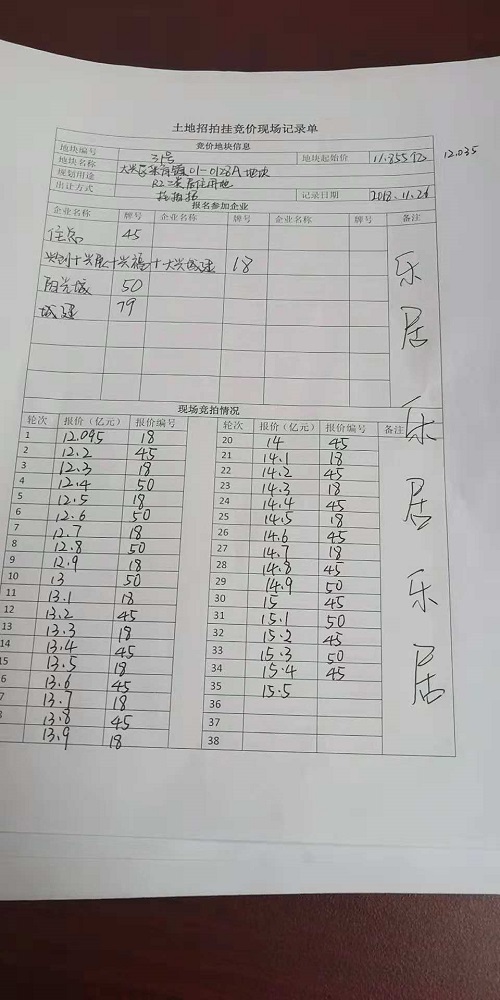 土地招拍挂竞价现场记录单
竞价地块信息
地块编号 31号 地块起始价 12.035
地块名称 大兴区 01-0128A地块
规划用途 R2二类居住用地
出让方式 挂 记录日期 2018.11.26
报名参加企业
企业名称 牌号 企业名称 牌号 企业名称 牌号 备注
住总 45
兴创+兴展+兴福+大兴城建 18
阳光城 50
城建 79
乐居 乐居 乐居
现场竞拍情况
轮次 报价（亿元） 报价编号 轮次 报价（亿元） 报价编号 备注
1 12.095 18 20 14 45
2 12.2 45 21 14.1 18
3 12.3 18 22 14.2 45
4 12.4 50 23 14.3 18
5 12.5 18 24 14.4 45
6 12.6 50 25 14.5 18
7 12.7 18 26 14.6 45
8 12.8 50 27 14.7 18
9 12.9 18 28 14.8 45
10 13 50 29 14.9 50
11 13.1 18 30 15 45
12 13.2 45 31 15.1 50
13 13.3 18 32 15.2 45
14 13.4 45 33 15.3 50
15 13.5 18 34 15.4 45
6 13.6 45 35 15.5
7 13.7 18 36
13.8 45 37
13.9 18 38